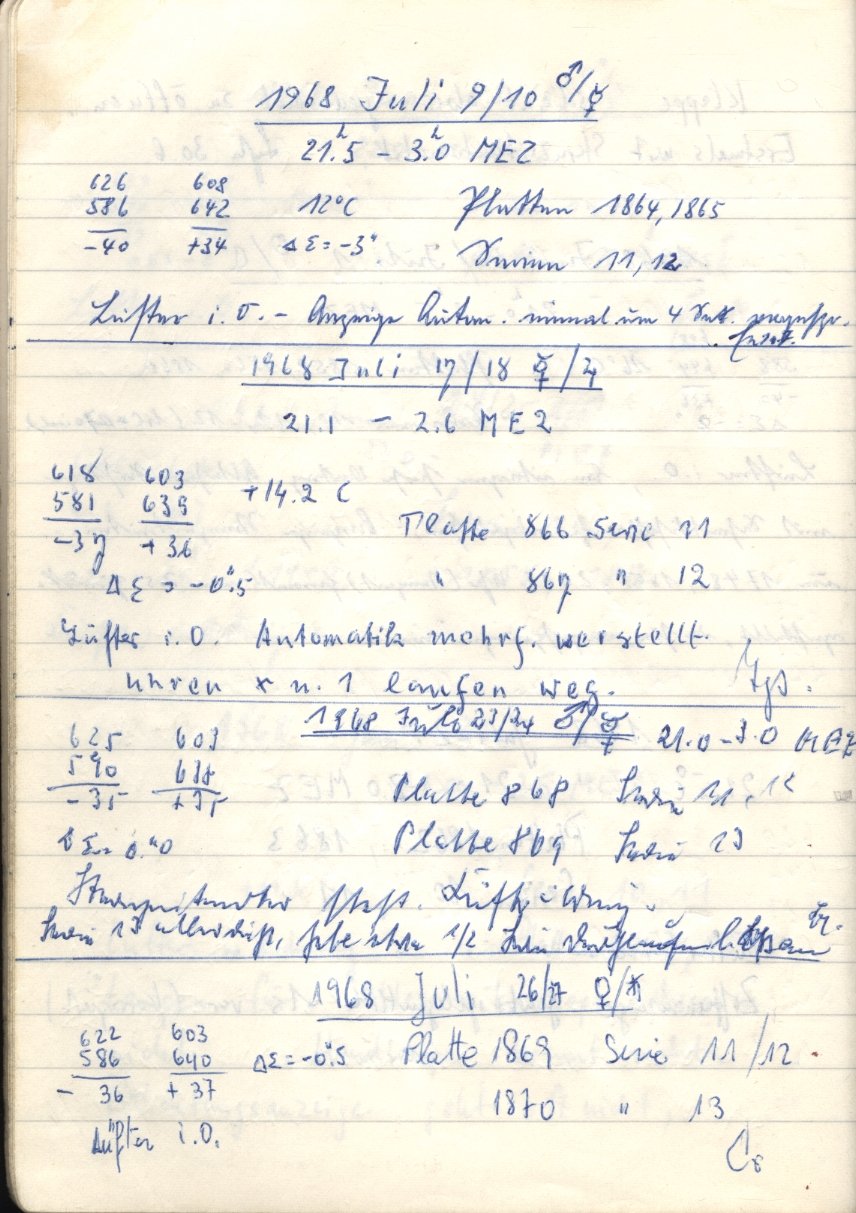 1968 Juli 9/10 ♂/☿
21.ʰ5 – 3.ʰ0 MEZ
626 608
586 642 12°C Platten 1864, 1865
-40 +34 ΔΣ = -3" Serien 11, 12
Lüfter i.O. – Anzeige Autom. einmal um 4
1968 Juli 17/18 ☿/♃
21.1 – 2.6 MEZ
618 603 +14.2 C
581 639 Platte 866 Serie 11
-37 +36
ΔΣ = -0."5 " 867 " 12
Lüfter i.O. Automatik mehrf. verstellt.
Uhren * u. 1 laufen weg.
1968 Juli 23/24 ♂/☿ 21.0 – 3.0 MEZ
625 603
590 638 Platte 868 Serie 11, 12
-35 +35
ΔΣ = 0."0 Platte 869 Serie 13
Serie 13 etwa 1/2 Serie
1968 Juli 26/27 ♀/♄
622 603
586 640 ΔΣ = -0."5 Platte 1869 Serie 11/12
- 36 + 37
1870 " 13
Lüfter i.O.